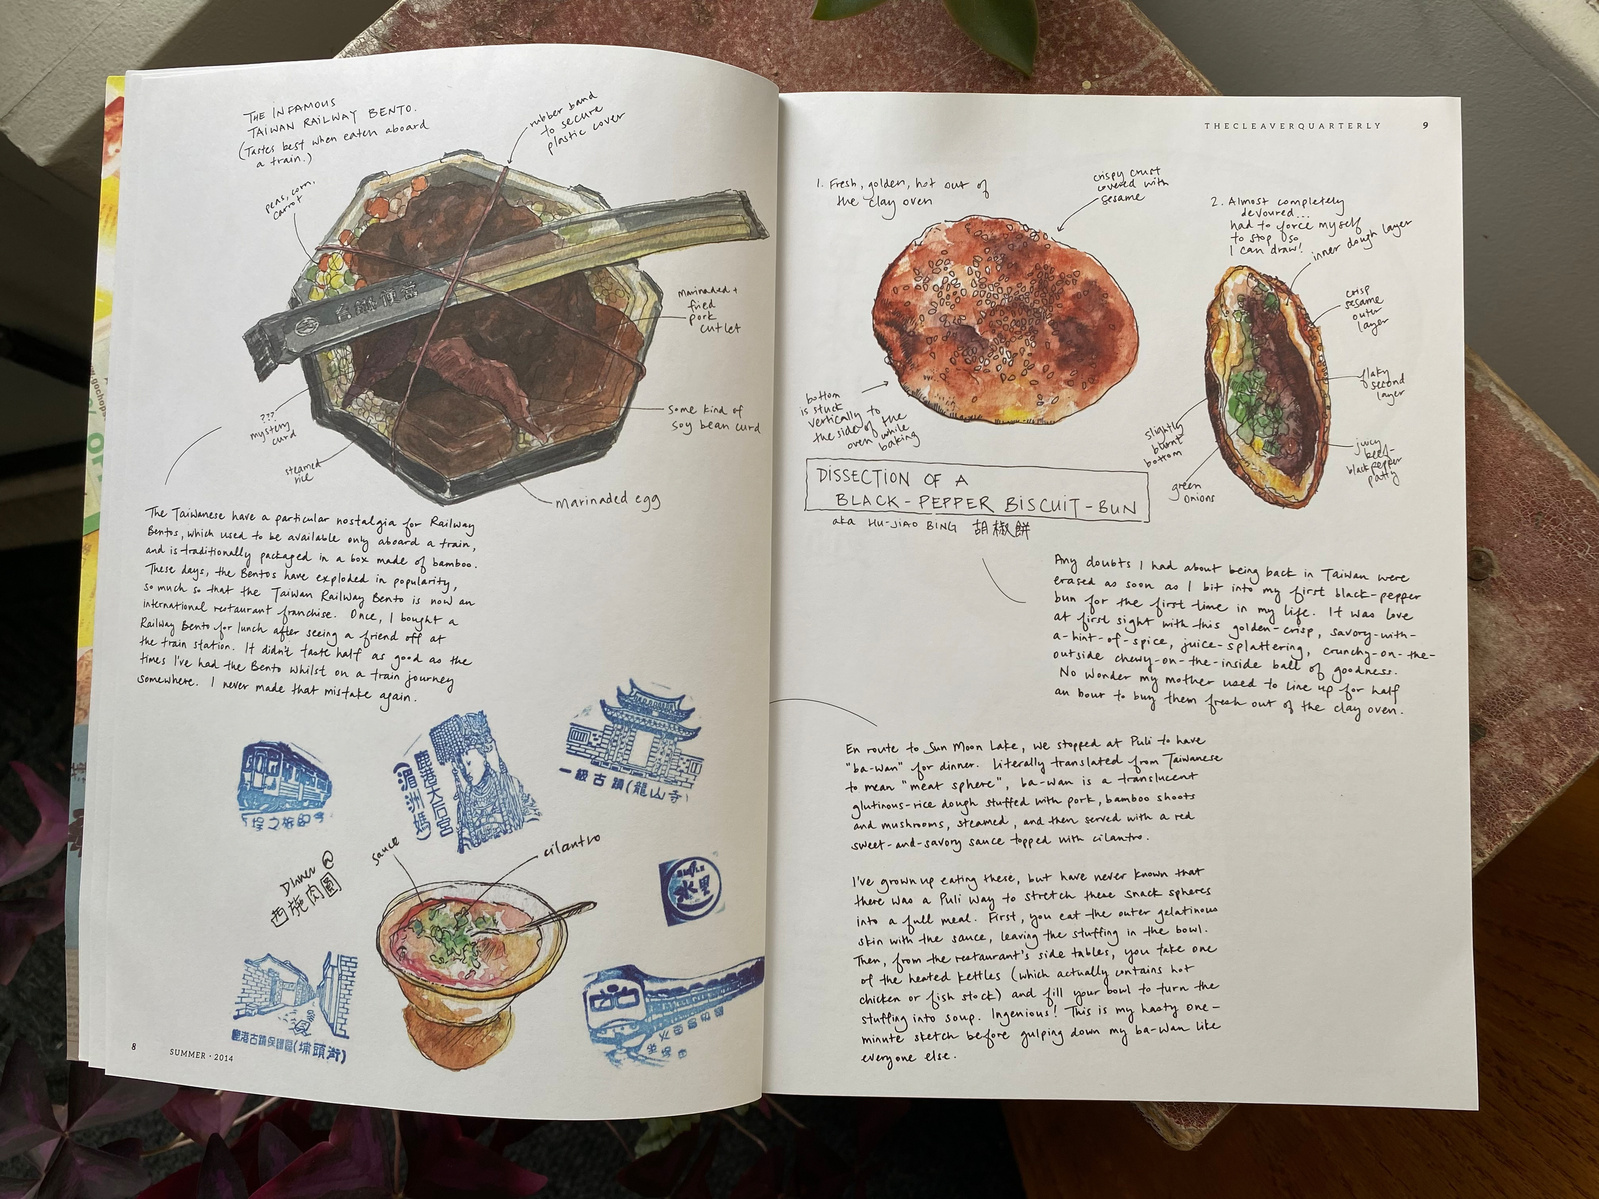 THE INFAMOUS
TAIWAN RAILWAY BENTO.
(Tastes best when eaten aboard
a train.)
rubber band
to secure
plastic cover
peas, corn,
carrot
marinaded +
fried
pork
cutlet
台鐵便當
???
mystery
curd
steamed
rice
some kind of
soy bean curd
marinaded egg
The Taiwanese have a particular nostalgia for Railway
Bentos, which used to be available only aboard a train,
and is traditionally packaged in a box made of bamboo.
These days, the Bentos have exploded in popularity,
so much so that the Taiwan Railway Bento is now an
international restaurant franchise. Once, I bought a
Railway Bento for lunch after seeing a friend off at
the train station. It didn't taste half as good as the
times I've had the Bento whilst on a train journey
somewhere. I never made that mistake again.
鹿港天后宮
(湄洲媽)
一級古蹟(龍山寺)
sauce
cilantro
Dinner @
西施肉圓
水里
鹿港古蹟保護區(埔頭街)
8
SUMMER · 2014
THECLEAVERQUARTERLY
9
1. Fresh, golden, hot out of
the clay oven
crispy crust
covered with
sesame
2. Almost completely
devoured...
had to force myself
to stop so
I can draw!
inner dough layer
crisp
sesame
outer
layer
flaky
second
layer
juicy
beef-
black pepper
patty
slightly
burnt
bottom
green
onions
bottom
is stuck
vertically to
the side of the
oven while
baking
DISSECTION OF A
BLACK-PEPPER BISCUIT-BUN
aka HU-JIAO BING 胡椒餅
Any doubts I had about being back in Taiwan were
erased as soon as I bit into my first black-pepper
bun for the first time in my life. It was love
at first sight with this golden-crisp, savory-with-
a-hint-of-spice, juice-splattering, crunchy-on-the-
outside chewy-on-the-inside ball of goodness.
No wonder my mother used to line up for half
an hour to buy them fresh out of the clay oven.
En route to Sun Moon Lake, we stopped at Puli to have
"ba-wan" for dinner. Literally translated from Taiwanese
to mean "meat sphere", ba-wan is a translucent
glutinous-rice dough stuffed with pork, bamboo shoots
and mushrooms, steamed, and then served with a red
sweet-and-savory sauce topped with cilantro.
I've grown up eating these, but have never known that
there was a Puli way to stretch these snack spheres
into a full meal. First, you eat the outer gelatinous
skin with the sauce, leaving the stuffing in the bowl.
Then, from the restaurant's side tables, you take one
of the heated kettles (which actually contains hot
chicken or fish stock) and fill your bowl to turn the
stuffing into soup. Ingenious! This is my hasty one-
minute sketch before gulping down my ba-wan like
everyone else.